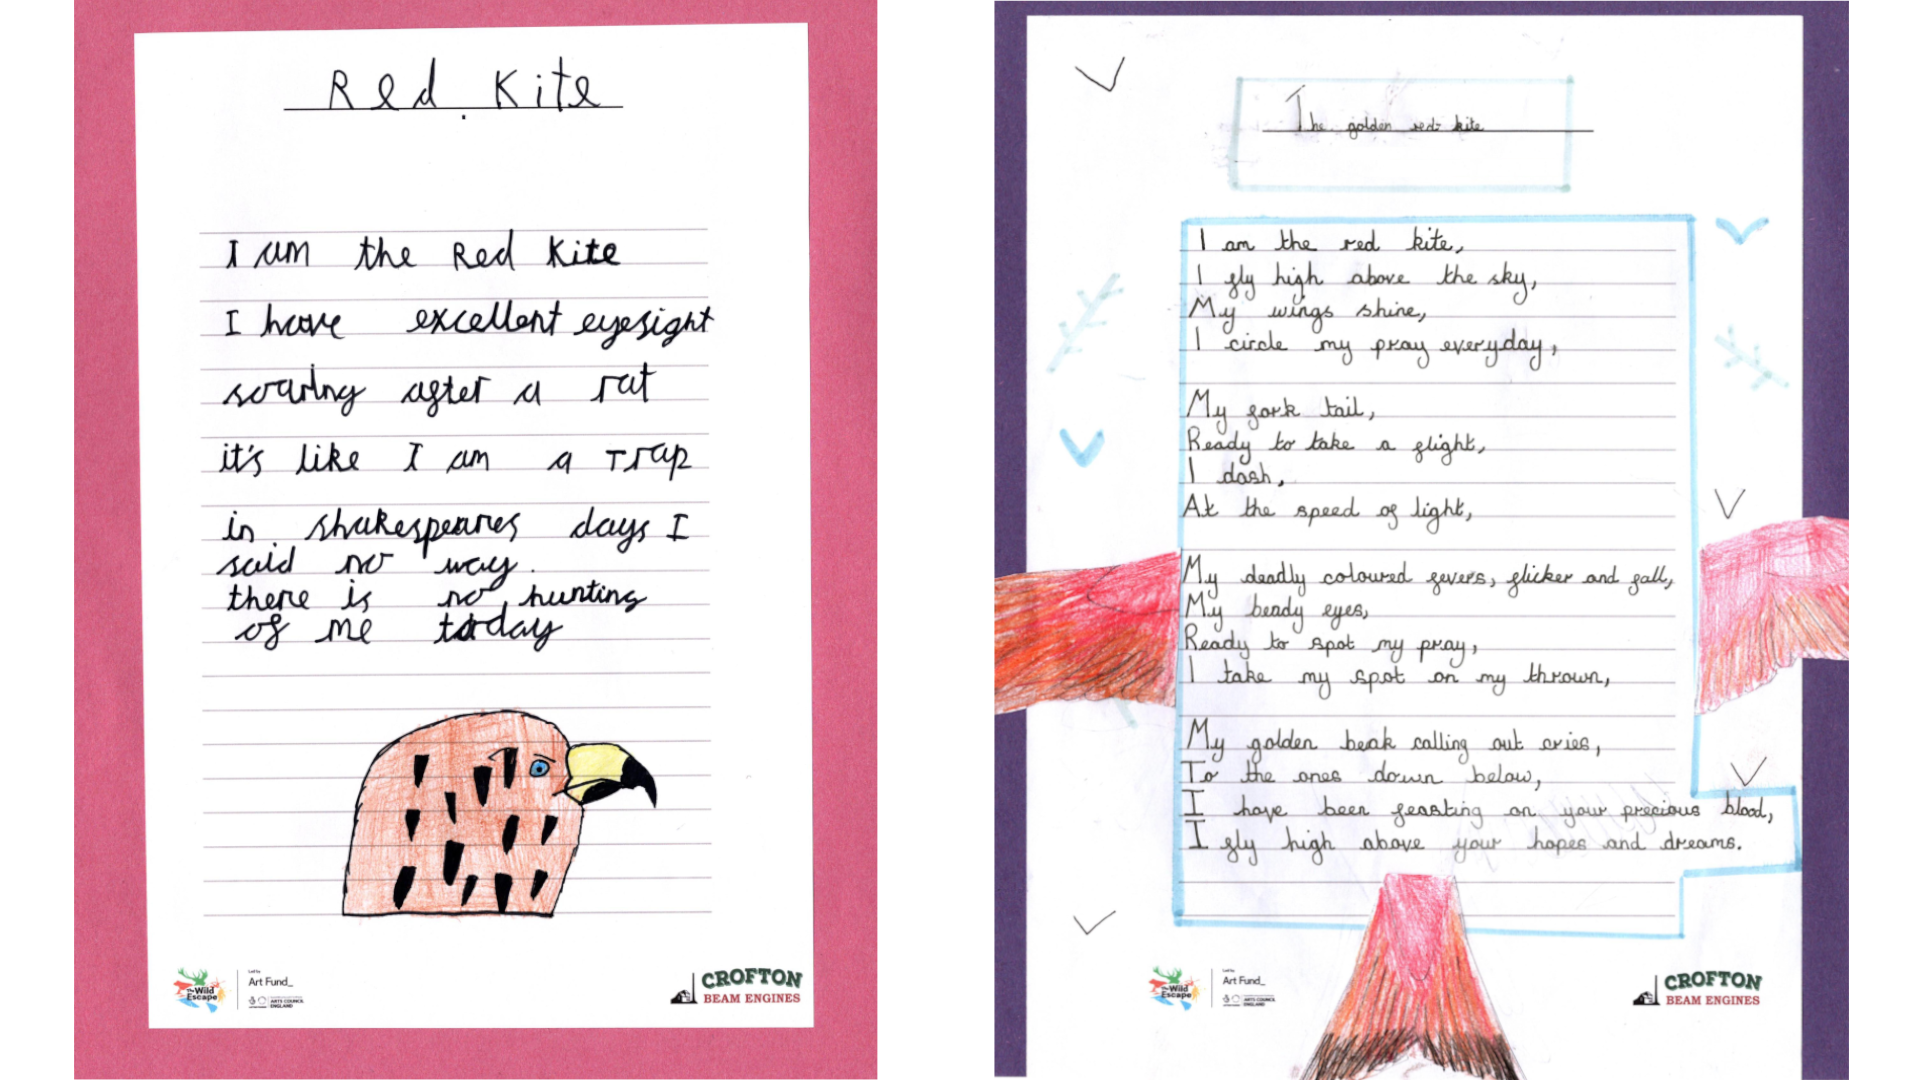 Red Kite
I am the Red Kite
I have excellent eyesight
soaring after a rat
it's like I am a Trap
in shakespeares days I
said no way.
there is no hunting
of me today
The Wild Escape
Led by
Art Fund_
ARTS COUNCIL
ENGLAND
CROFTON
BEAM ENGINES
The golden red kite
I am the red kite,
I fly high above the sky,
My wings shine,
I circle my pray everyday,
My fork tail,
Ready to take a flight,
I dash,
At the speed of light,
My deadly coloured fevers, flicker and fall,
My beady eyes,
Ready to spot my pray,
I take my spot on my thrown,
My golden beak calling out cries,
To the ones down below,
I have been feasting on your precious blood,
I fly high above your hopes and dreams.
The Wild Escape
Led by
Art Fund_
ARTS COUNCIL
ENGLAND
CROFTON
BEAM ENGINES